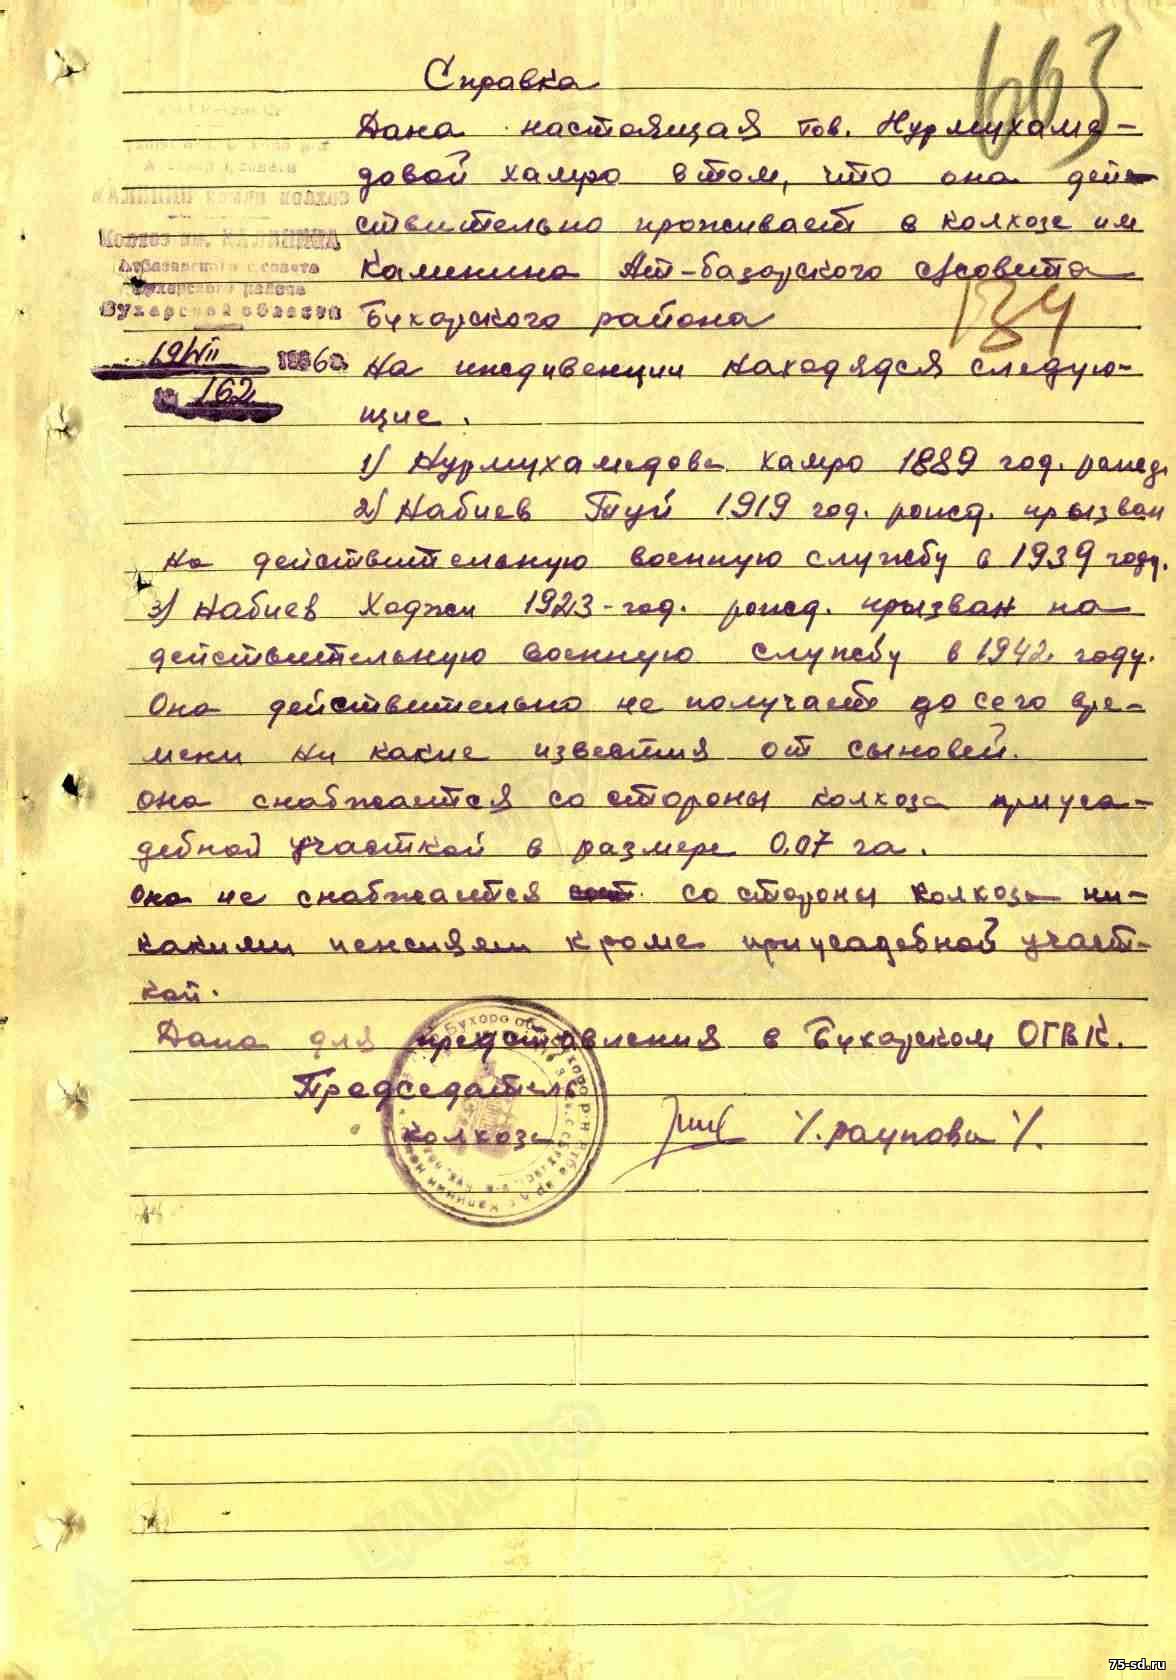 663
Справка
Дана настоящая тов. Нурмухаме-
довой хамро в том, что она дей-
ствительно проживает в колхозе им
Калинина Ат-базарского с/совета
Бухарского района
134
КАЛИНИН колхоз
Колхоз им. КАЛИНИНА
Атбазарского с/совета
Бухарского района
Бухарской области
19/VII 1946г.
№ 162
На иждивенции находядся следую-
щие.
1) Нурмухамедова хамро 1889 год. рожд.
2) Набиев Туй 1919 год. рожд. призван
на действительную военную службу в 1939 году.
3) Набиев Ходжи 1923-год. рожд. призван на
действительную военную службу в 1942 году.
Она действительно не получает до сего вре-
мени ни какие известия от сыновей.
она снабжается со стороны колхоза приуса-
дебной участкой в размере 0.07 га.
Она не снабжается со стороны колхоза ни-
какими пенсиями кроме приусадебной участ-
кой.
Дана для представления в Бухарском ОГВК.
Председатель
колхоза /. раупова /.
ЦАМО РФ
75-sd.ru